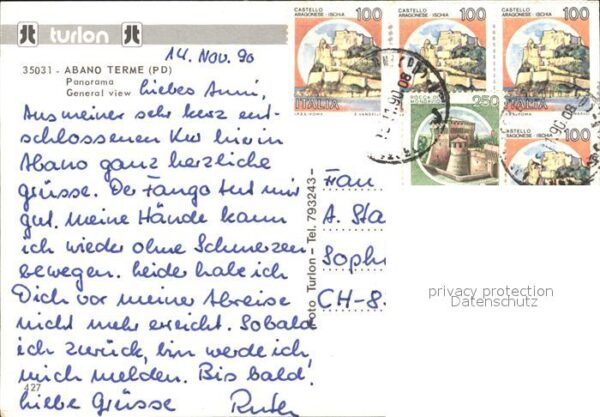 turlon
14. Nov. 90
35031 - ABANO TERME (PD)
Panorama
General view
liebes Anni,
Aus meiner sehr kurz ent-
schlossenen Kur hier in
Abano ganz herzliche
grüsse. Der Fango tut mir
gut. Meine Hände kann
ich wieder ohne Schmerzen
bewegen. leider habe ich
Dich vor meiner Abreise
nicht mehr erreicht. Sobald
ich zurück bin werde ich
mich melden. Bis bald!
liebe Grüsse Ruth
427
Foto Turlon - Tel. 793243-
CASTELLO
ARAGONESE - ISCHIA
100
ITALIA
CASTELLO
ARAGONESE - ISCHIA
100
CASTELLO
ARAGONESE - ISCHIA
100
ITALIA
250
CASTELLO
ARAGONESE - ISCHIA
100
Frau
A. Sta
Soph
CH-8
privacy protection
Datenschutz